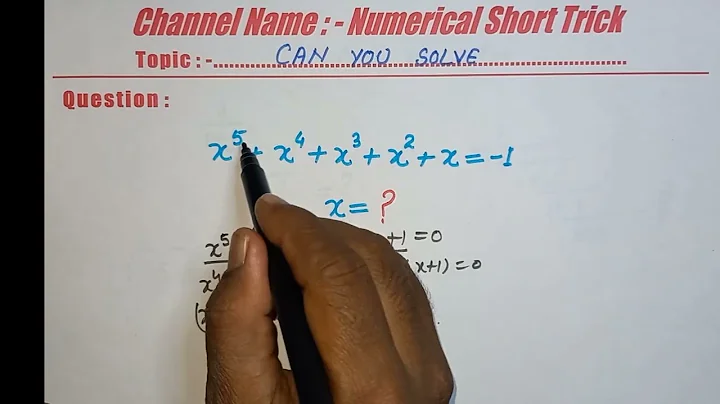 Channel Name : - Numerical Short Trick
Topic : -.....CAN YOU SOLVE.....
Question :
x⁵ + x⁴ + x³ + x² + x = -1
x = ?
x⁵ +1 = 0
x⁴ x+1) = 0